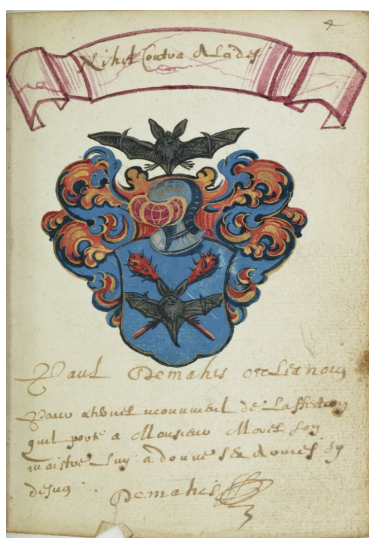 4
Nihil Contra
Paul Demahis orleanois
Pour athenel monument de Laffection
quil porte a Monsieur Morel son
maistre Luy a donne ses Armes cy
desus
Demahis